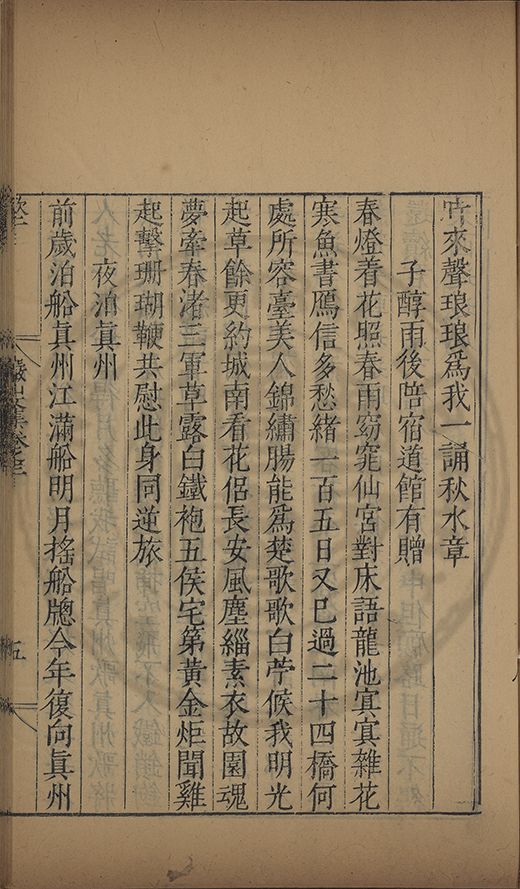 時來聲琅琅爲我一誦秋水章
子醇雨後陪宿道館有贈
春燈着花照春雨窈窕仙宮對床語龍池寘寘雜花
寒魚書鴈信多愁緒一百五日又已過二十四橋何
處所容臺美人錦繡腸能爲楚歌歌白苧候我明光
起草餘更約城南看花侶長安風塵緇素衣故園魂
夢牽春渚三軍草露白鐵袍五侯宅第黃金炬聞雞
起擊珊瑚鞭共慰此身同逆旅
夜泊眞州
前歲泊船眞州江滿船明月搖船牕今年復向眞州
五